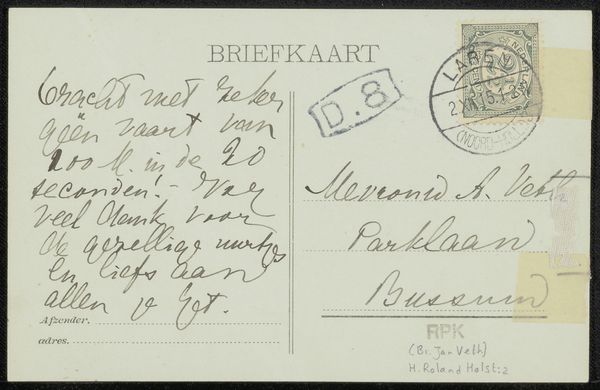 BRIEFKAART
bracht met zeker
géén vaart van
100 M. in de 20
seconden! - Voor
veel dank voor
de gezellige uurtjes
En liefs aan
allen je Jet.
Afzender.
adres.
D. 8
LAREN
2.XII 15.12
(NOORD-HOLL)
NEDERLAND
Mevrouw A. Veth
Parklaan
Bussum
RPK
(Br. Jan Veth)
H. Roland Holst: 2